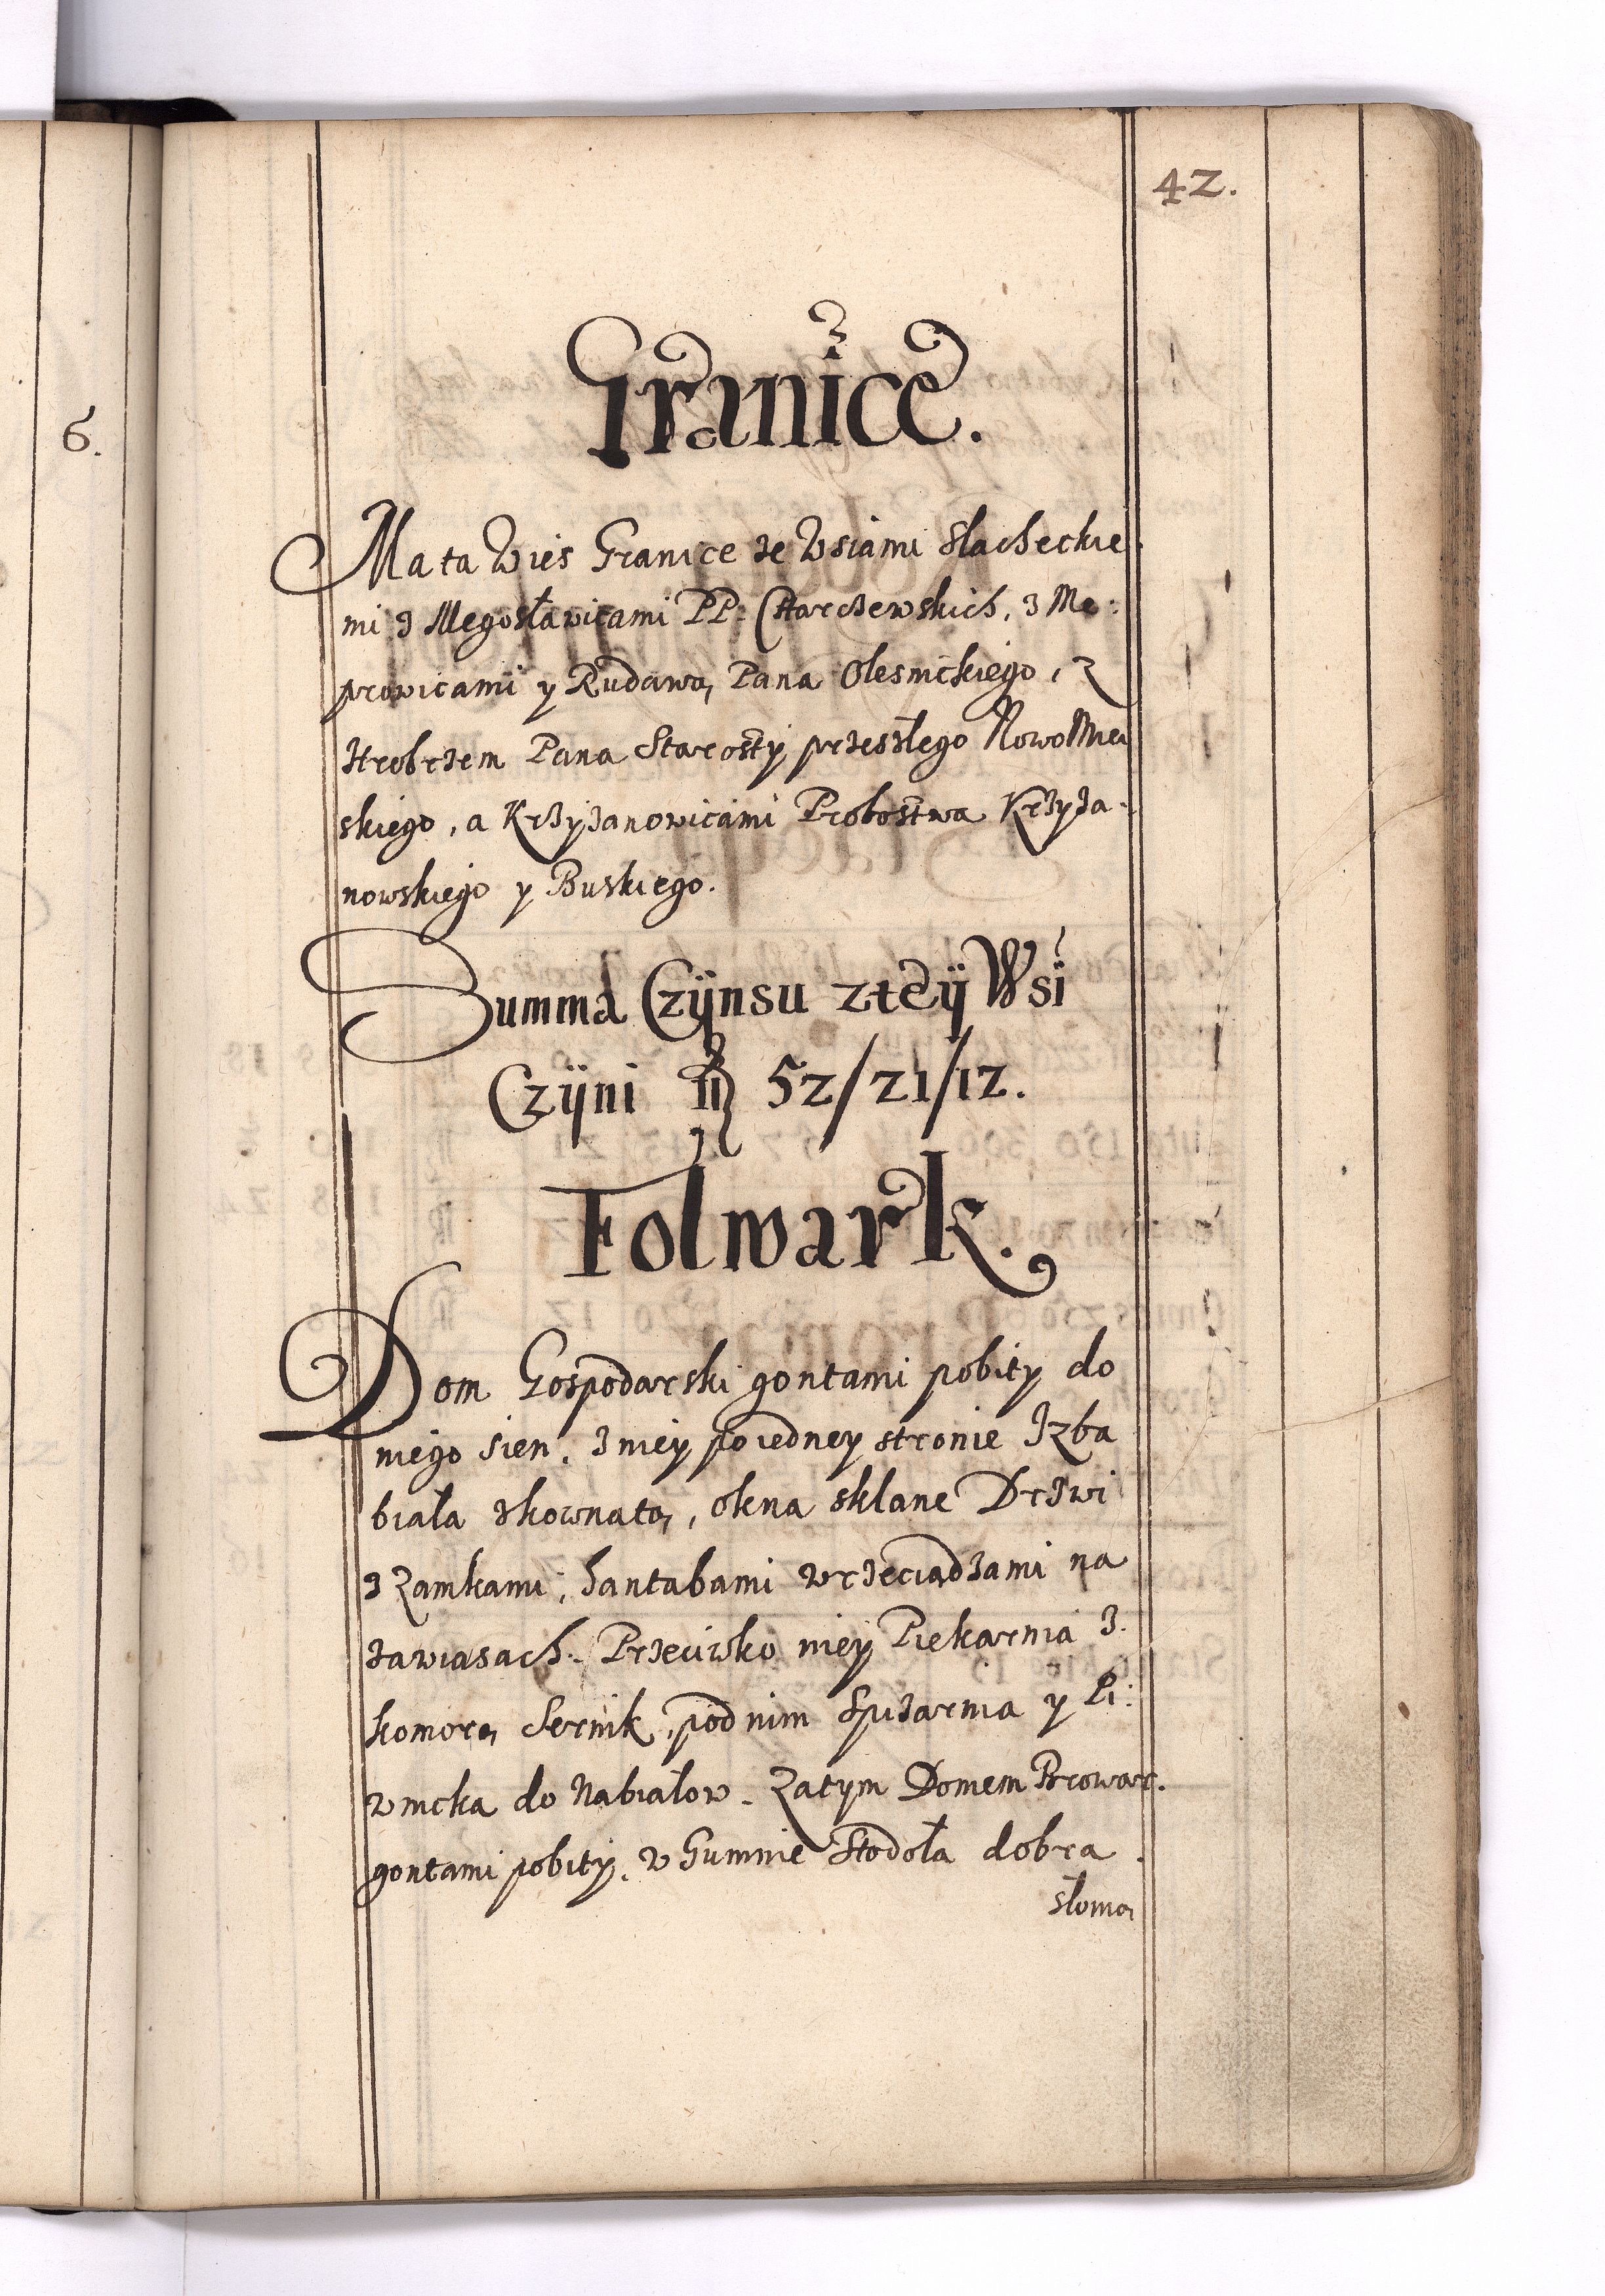 42.
6.
Granice.
Ma ta Wies Granice ze Wsiami slacheckie
mi z Megosławicami PP. Charczewskich, z Me:
prowicami y Rudawą Pana Olesnickiego, z
Hrobrzem Pana Starosty przeszłego NowoMiei
skiego, a Krzyżanowicami Probostwa Krzyża-
nowskiego y Buskiego.
Summa Czÿnsu zteÿ Wsi
Czÿni fl 52/21/12.
Folwark.
Dom Gospodarski gontami pobity do
niego sien. z niey po iedney stronie Izba
biała zkownatą, okna sklane Drzwi
z Zamkami, hantabami wrzeciadzami na
zawiasach. Przeciwko niey Piekarnia z.
komorą Sernik, pod nim Spizarnia y Pi:
wnicka do Nabiałow. Za tym Domem Browar.
gontami pobity. w Gumnie Stodoła dobra.
słomą